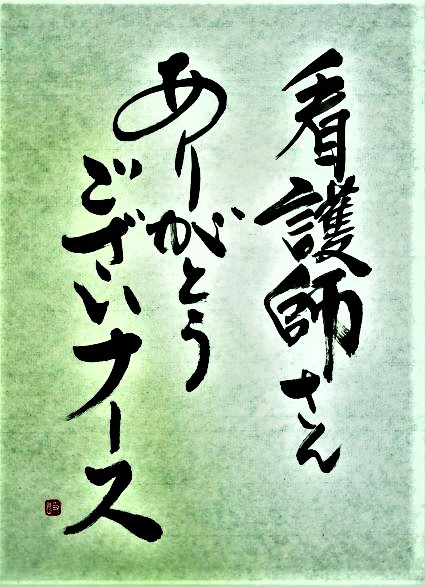 看護師さん
ありがとう
ございナース